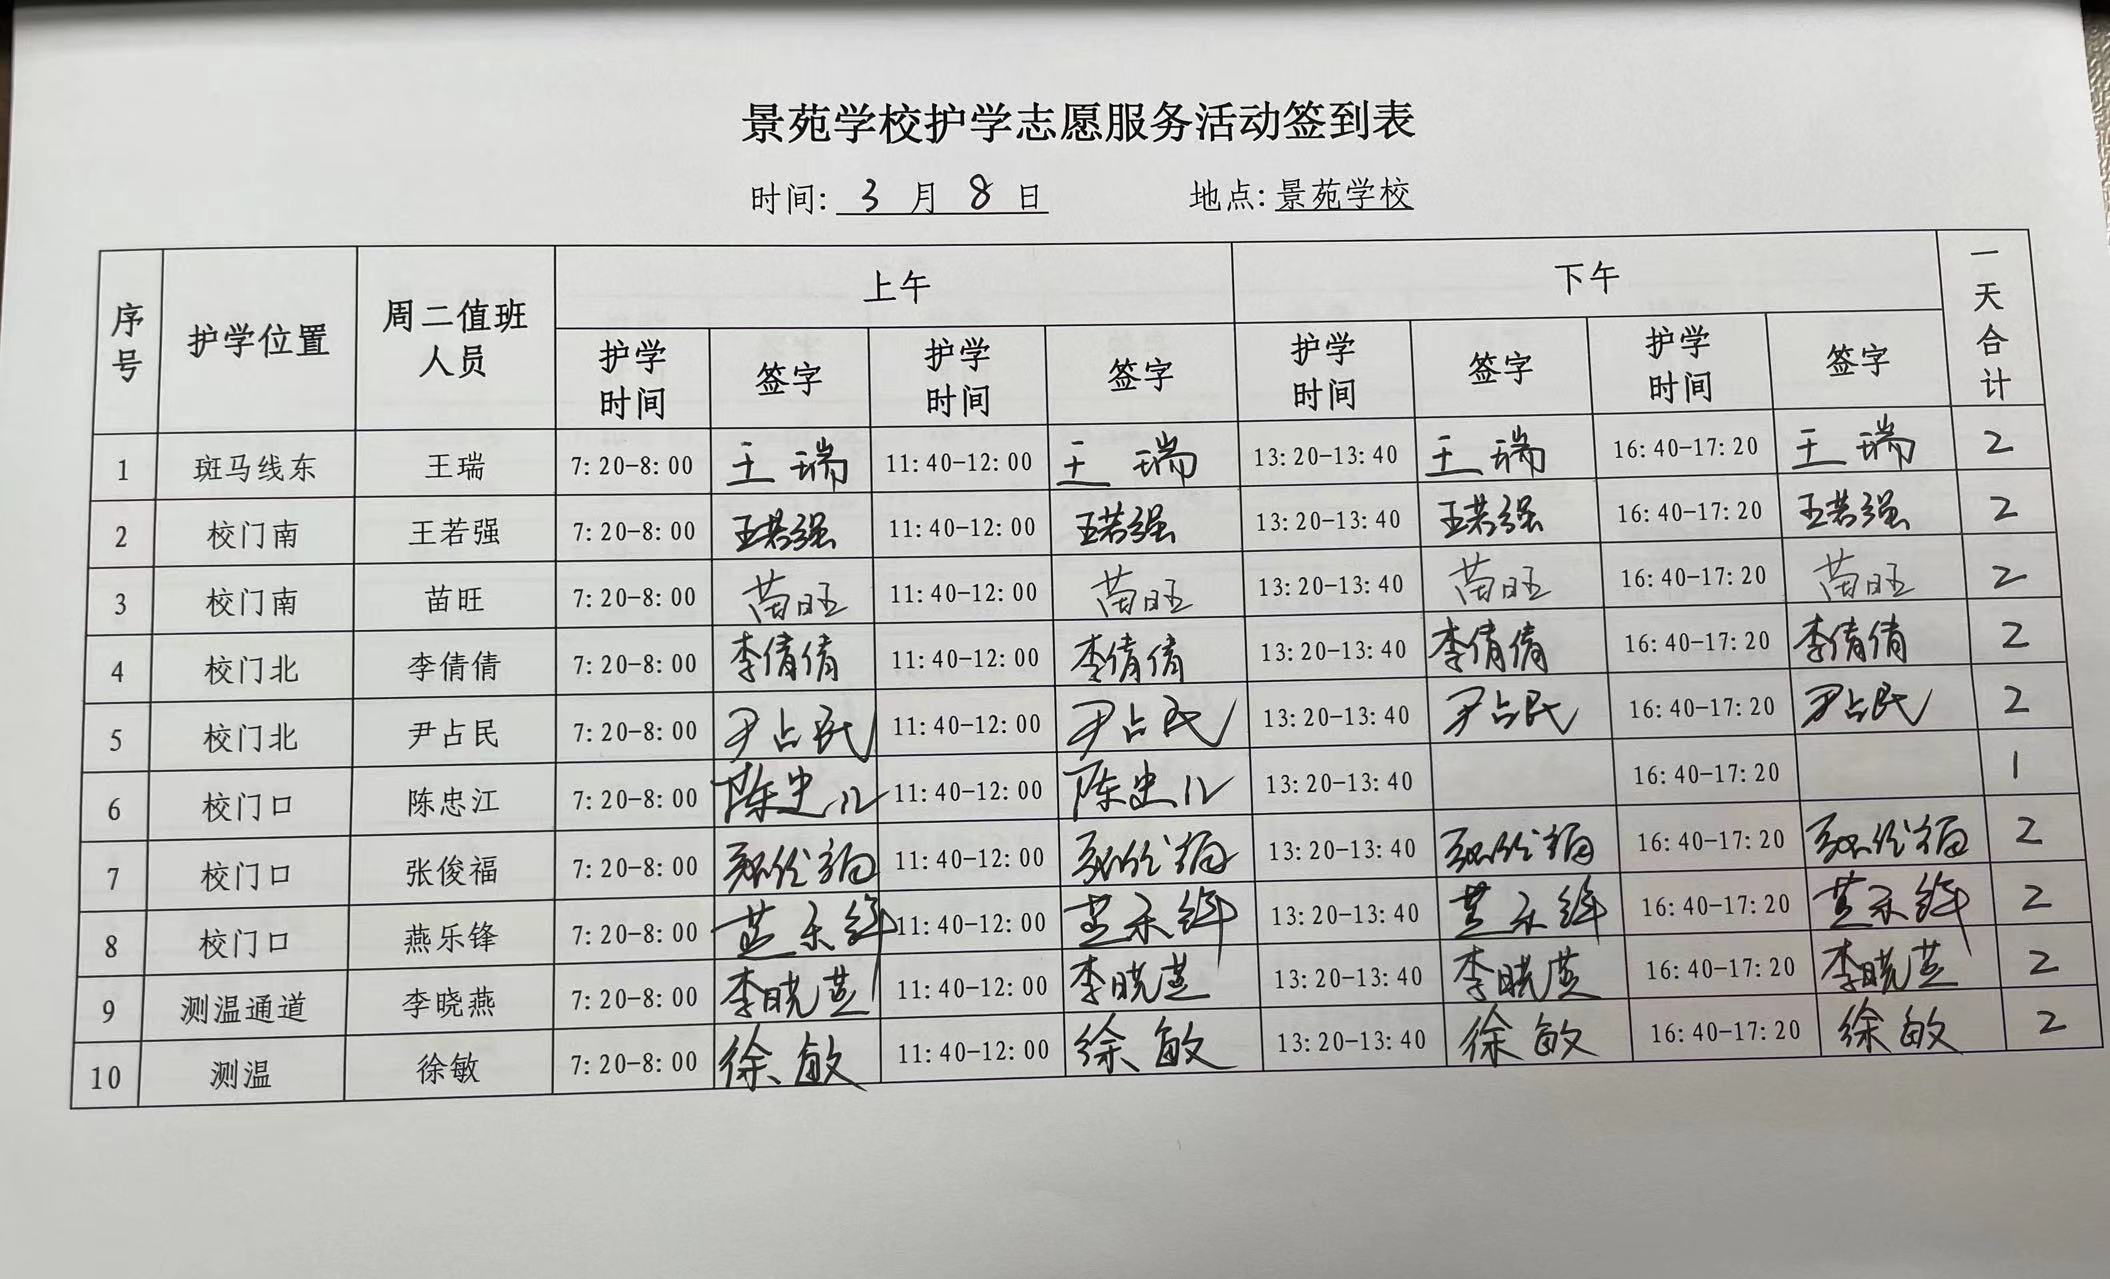 景苑学校护学志愿服务活动签到表
时间: 3 月 8 日 地点: 景苑学校
序号 护学位置 周二值班人员 上午 下午 一天合计
护学时间 签字 护学时间 签字 护学时间 签字 护学时间 签字
1 斑马线东 王瑞 7:20-8:00 王瑞 11:40-12:00 王瑞 13:20-13:40 王瑞 16:40-17:20 王瑞 2
2 校门南 王若强 7:20-8:00 王若强 11:40-12:00 王若强 13:20-13:40 王若强 16:40-17:20 王若强 2
3 校门南 苗旺 7:20-8:00 苗旺 11:40-12:00 苗旺 13:20-13:40 苗旺 16:40-17:20 苗旺 2
4 校门北 李倩倩 7:20-8:00 李倩倩 11:40-12:00 李倩倩 13:20-13:40 李倩倩 16:40-17:20 李倩倩 2
5 校门北 尹占民 7:20-8:00 尹占民 11:40-12:00 尹占民 13:20-13:40 尹占民 16:40-17:20 尹占民 2
6 校门口 陈忠江 7:20-8:00 陈忠江 11:40-12:00 陈忠江 13:20-13:40 16:40-17:20 1
7 校门口 张俊福 7:20-8:00 张俊福 11:40-12:00 张俊福 13:20-13:40 张俊福 16:40-17:20 张俊福 2
8 校门口 燕乐锋 7:20-8:00 燕乐锋 11:40-12:00 燕乐锋 13:20-13:40 燕乐锋 16:40-17:20 燕乐锋 2
9 测温通道 李晓燕 7:20-8:00 李晓燕 11:40-12:00 李晓燕 13:20-13:40 李晓燕 16:40-17:20 李晓燕 2
10 测温 徐敏 7:20-8:00 徐敏 11:40-12:00 徐敏 13:20-13:40 徐敏 16:40-17:20 徐敏 2